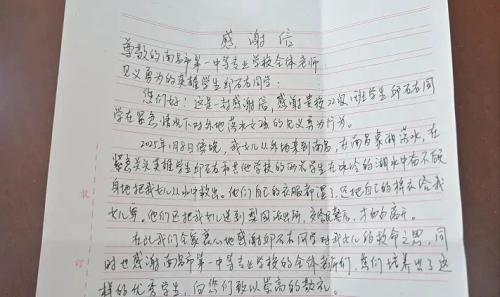 感谢信
尊敬的南昌市第一中等专业学校全体老师
见义勇为的英雄学生邱石石同学:
您们好!这是一封感谢信,感谢贵校22级1班学生邱石石同
学在紧急情况下对外地落水女孩的见义勇为行为。
2025年1月8日傍晚,我女儿从外地来到南昌,在南昌象湖落水,在
紧急关头英雄学生邱石石和其他学校的两名学生在冰冷的湖水中奋不顾
身地把我女儿从水中救出。他们自己的衣服都湿了,还把自己的棉衣给我
女儿穿。他们还把我女儿送到梨园派出所,交给警官,才回家离开。
在此我们全家衷心地感谢邱石石同学对我女儿的救命之恩,同
时也感谢南昌市第一中等专业学校的全体老师们,您们培养出了这
样的优秀学生,向您们致以崇高的敬礼
装
订